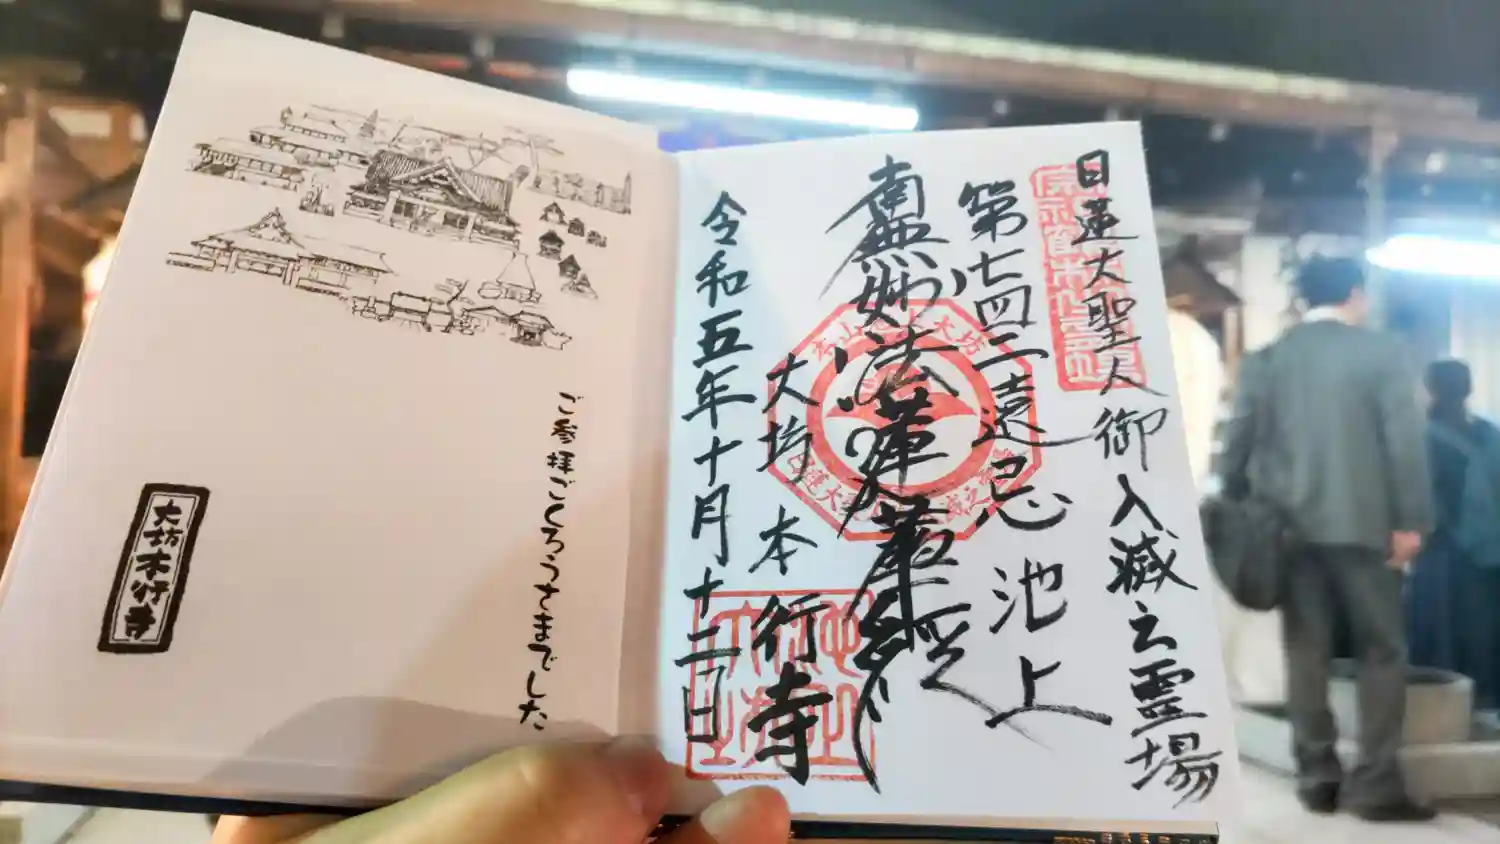 日蓮大聖人御入滅之霊場
第七四二遠忌 池上
南無妙法蓮華経
大坊 本行寺
令和五年十月十二日
ご参拝ごくろうさまでした
大坊本行寺